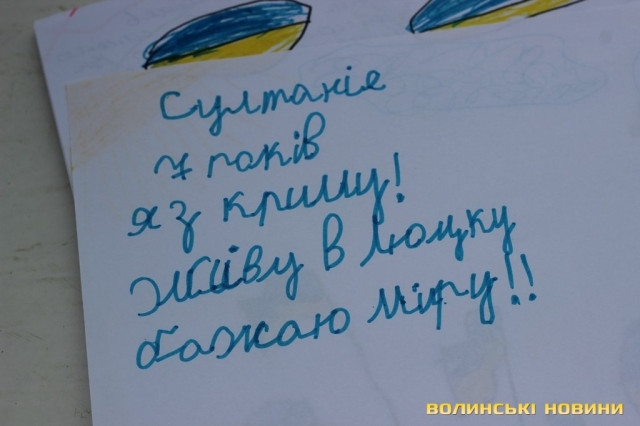 Султаніє
7 років
я з криму!
Живу в Люцку
бажаю миру!!
ВОЛИНСЬКІ НОВИНИ